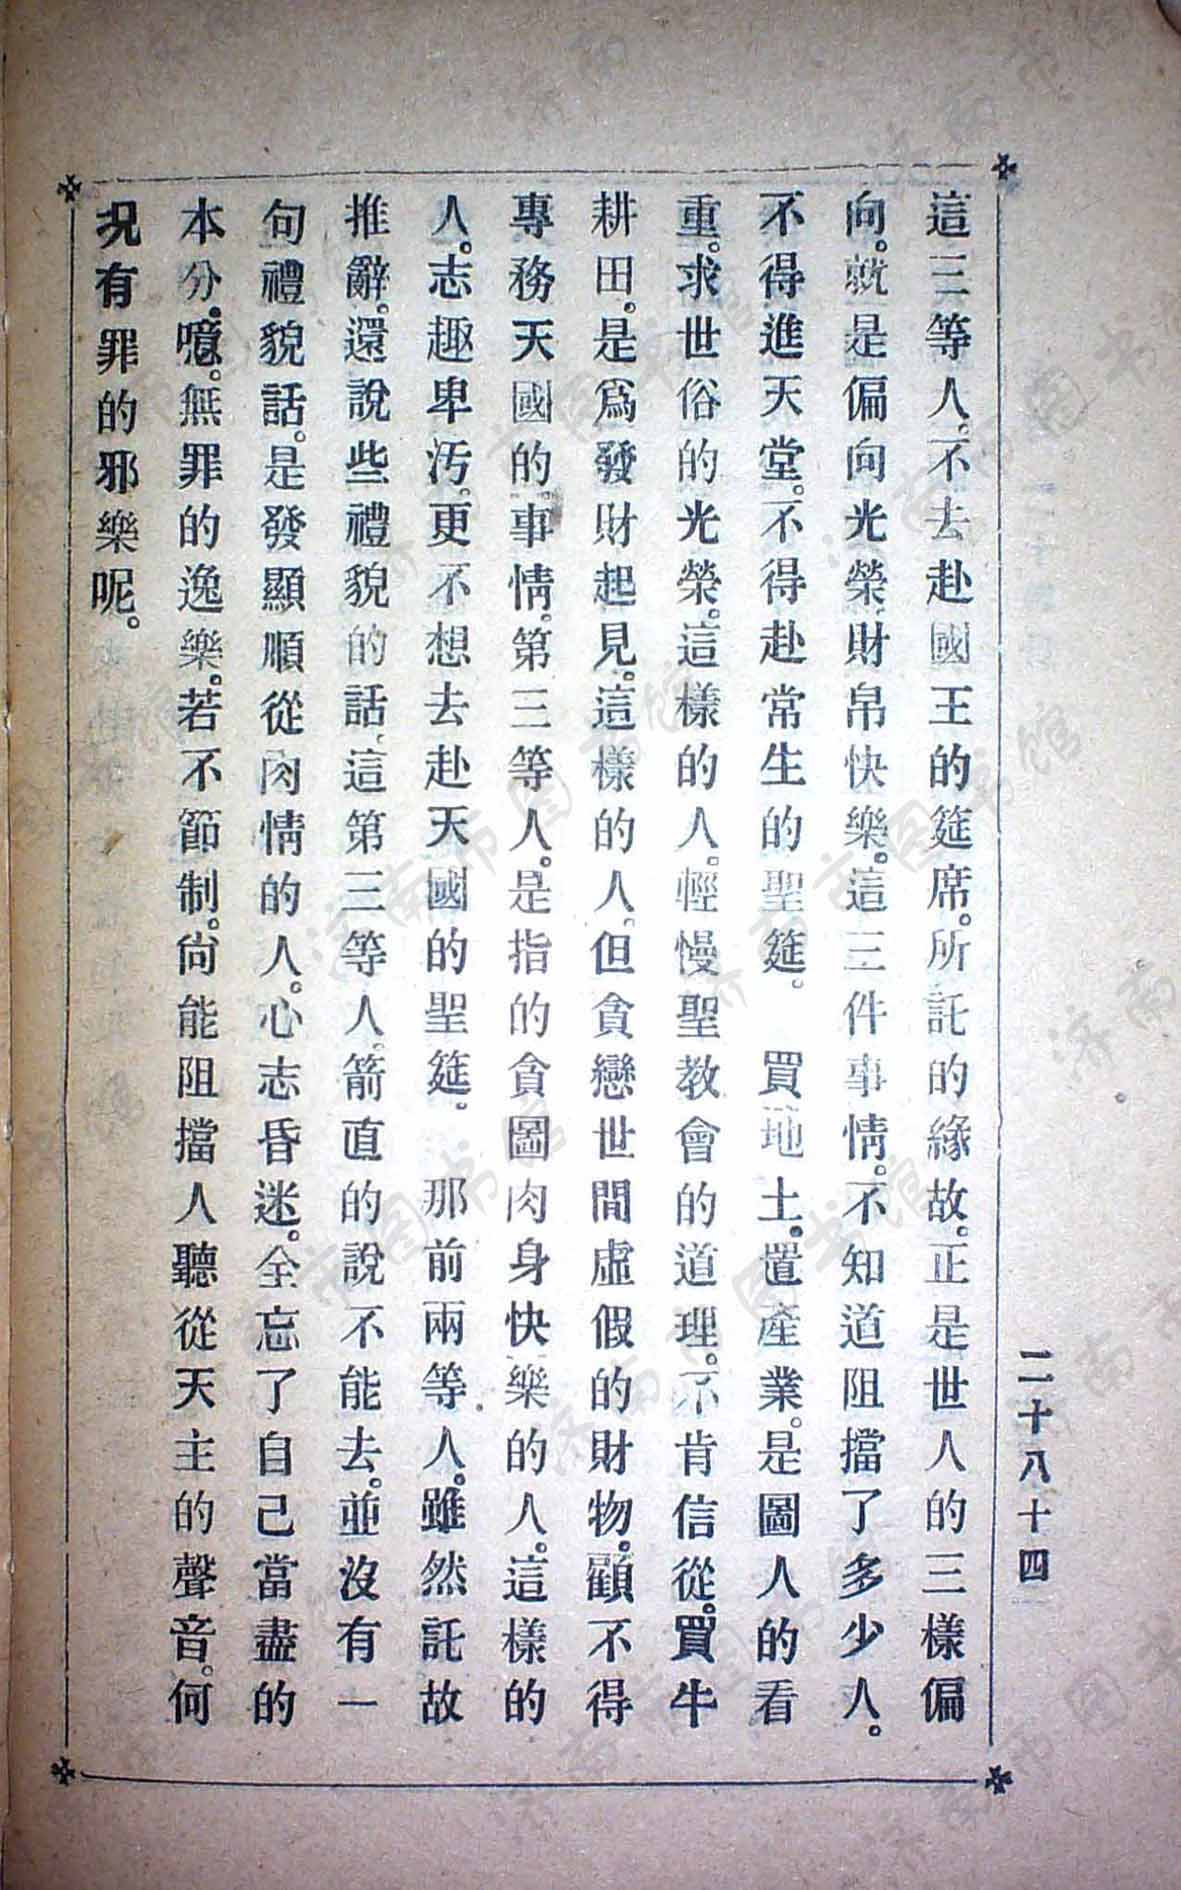 二十八十四
這三等人。不去赴國王的筵席。所託的緣故。正是世人的三樣偏
向。就是偏向光榮、財帛、快樂。這三件事情。不知道阻擋了多少人。
不得進天堂。不得赴常生的聖筵。　買地土。置產業。是圖人的看
重。求世俗的光榮。這樣的人。輕慢聖教會的道理。不肯信從。買牛
耕田。是爲發財起見。這樣的人。但貪戀世間虛假的財物。顧不得
專務天國的事情。第三等人。是指的貪圖肉身快樂的人。這樣的
人。志趣卑污。更不想去赴天國的聖筵。　那前兩等人。雖然託故
推辭。還說些禮貌的話、這第三等人。箭直的說不能去。並沒有一
句禮貌話。是發顯順從肉情的人。心志昏迷。全忘了自己當盡的
本分。噫。無罪的逸樂。若不節制。尙能阻擋人聽從天主的聲音。何
況有罪的邪樂呢。
济南市图书馆